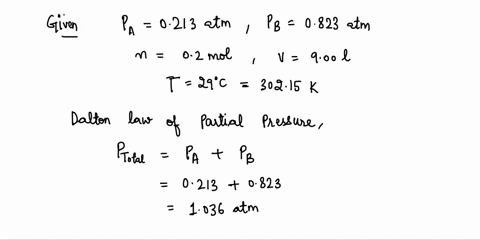 Given P_A = 0.213 atm , P_B = 0.823 atm
n = 0.2 mol , V = 9.00 l
T = 29°C = 302.15 K
Dalton law of Partial Pressure,
P_Total = P_A + P_B
= 0.213 + 0.823
= 1.036 atm